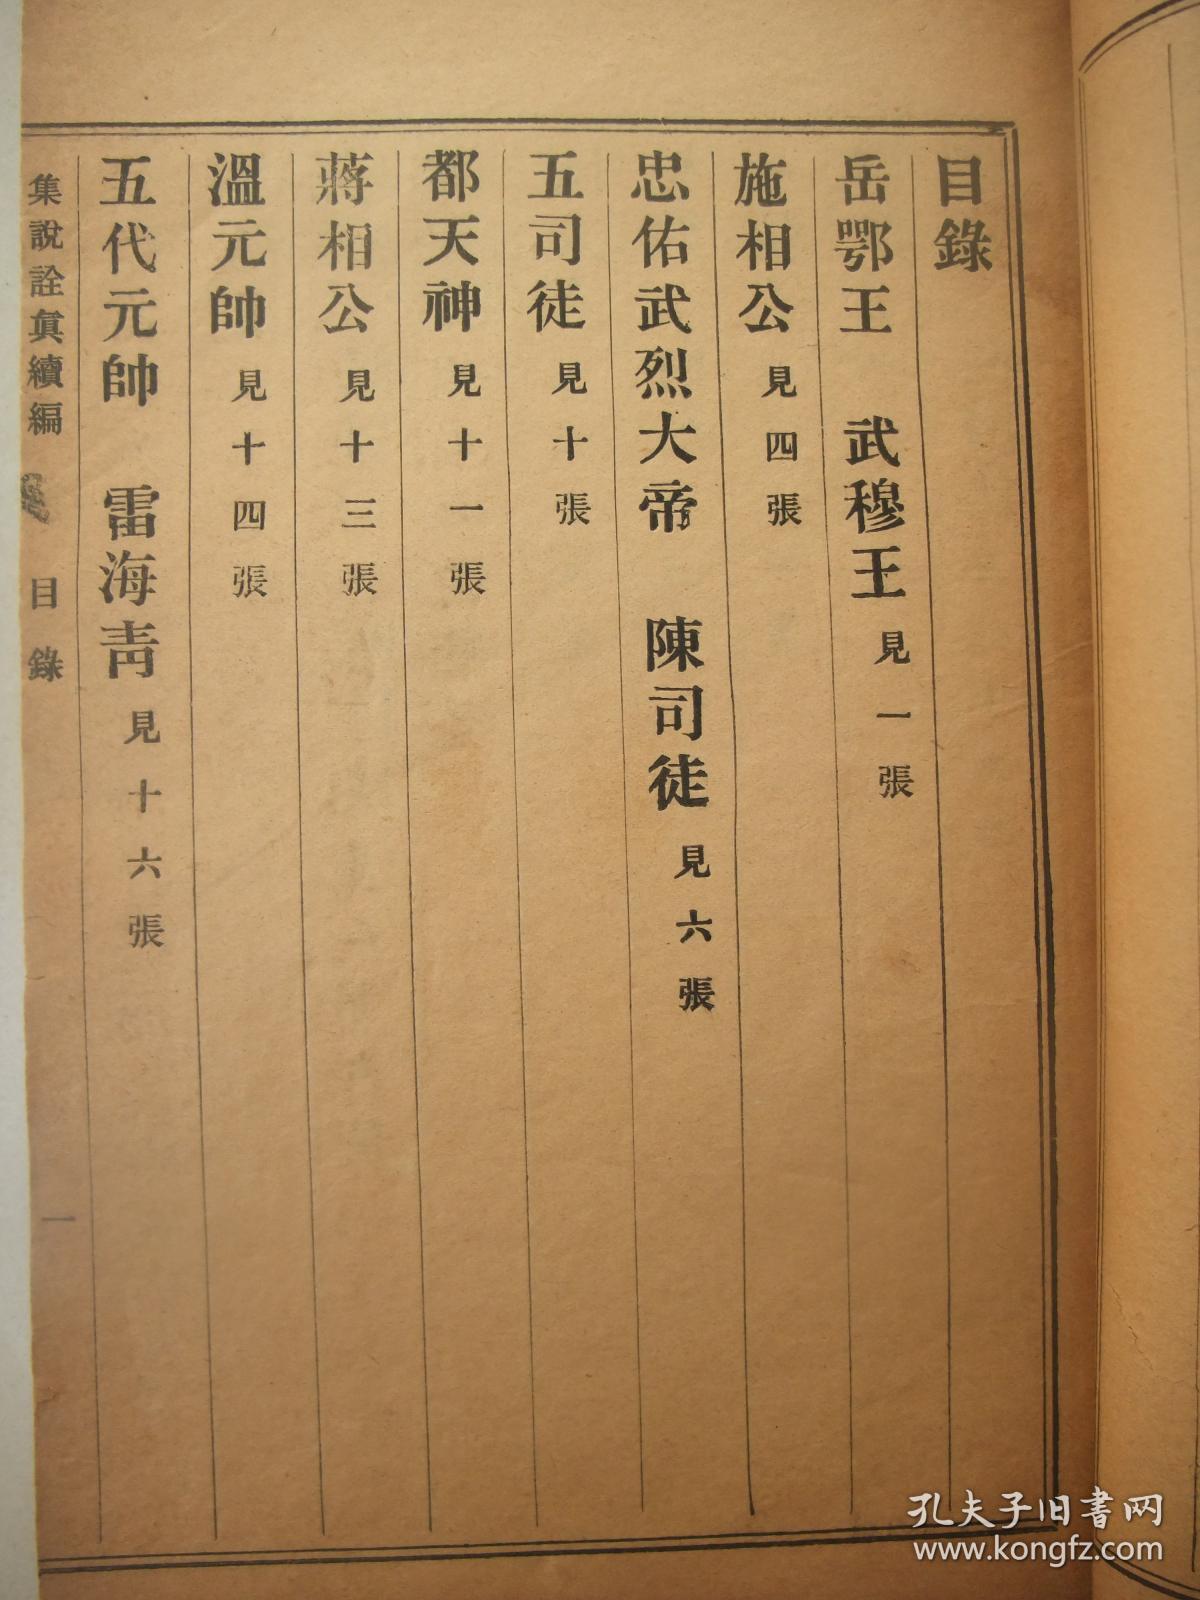 目錄
岳鄂王　武穆王見一張
施相公見四張
忠佑武烈大帝　陳司徒見六張
五司徒見十張
都天神見十一張
蔣相公見十三張
溫元帥見十四張
五代元帥　雷海靑見十六張
集說詮眞續編　目錄　一
孔夫子旧书网
www.kongfz.com